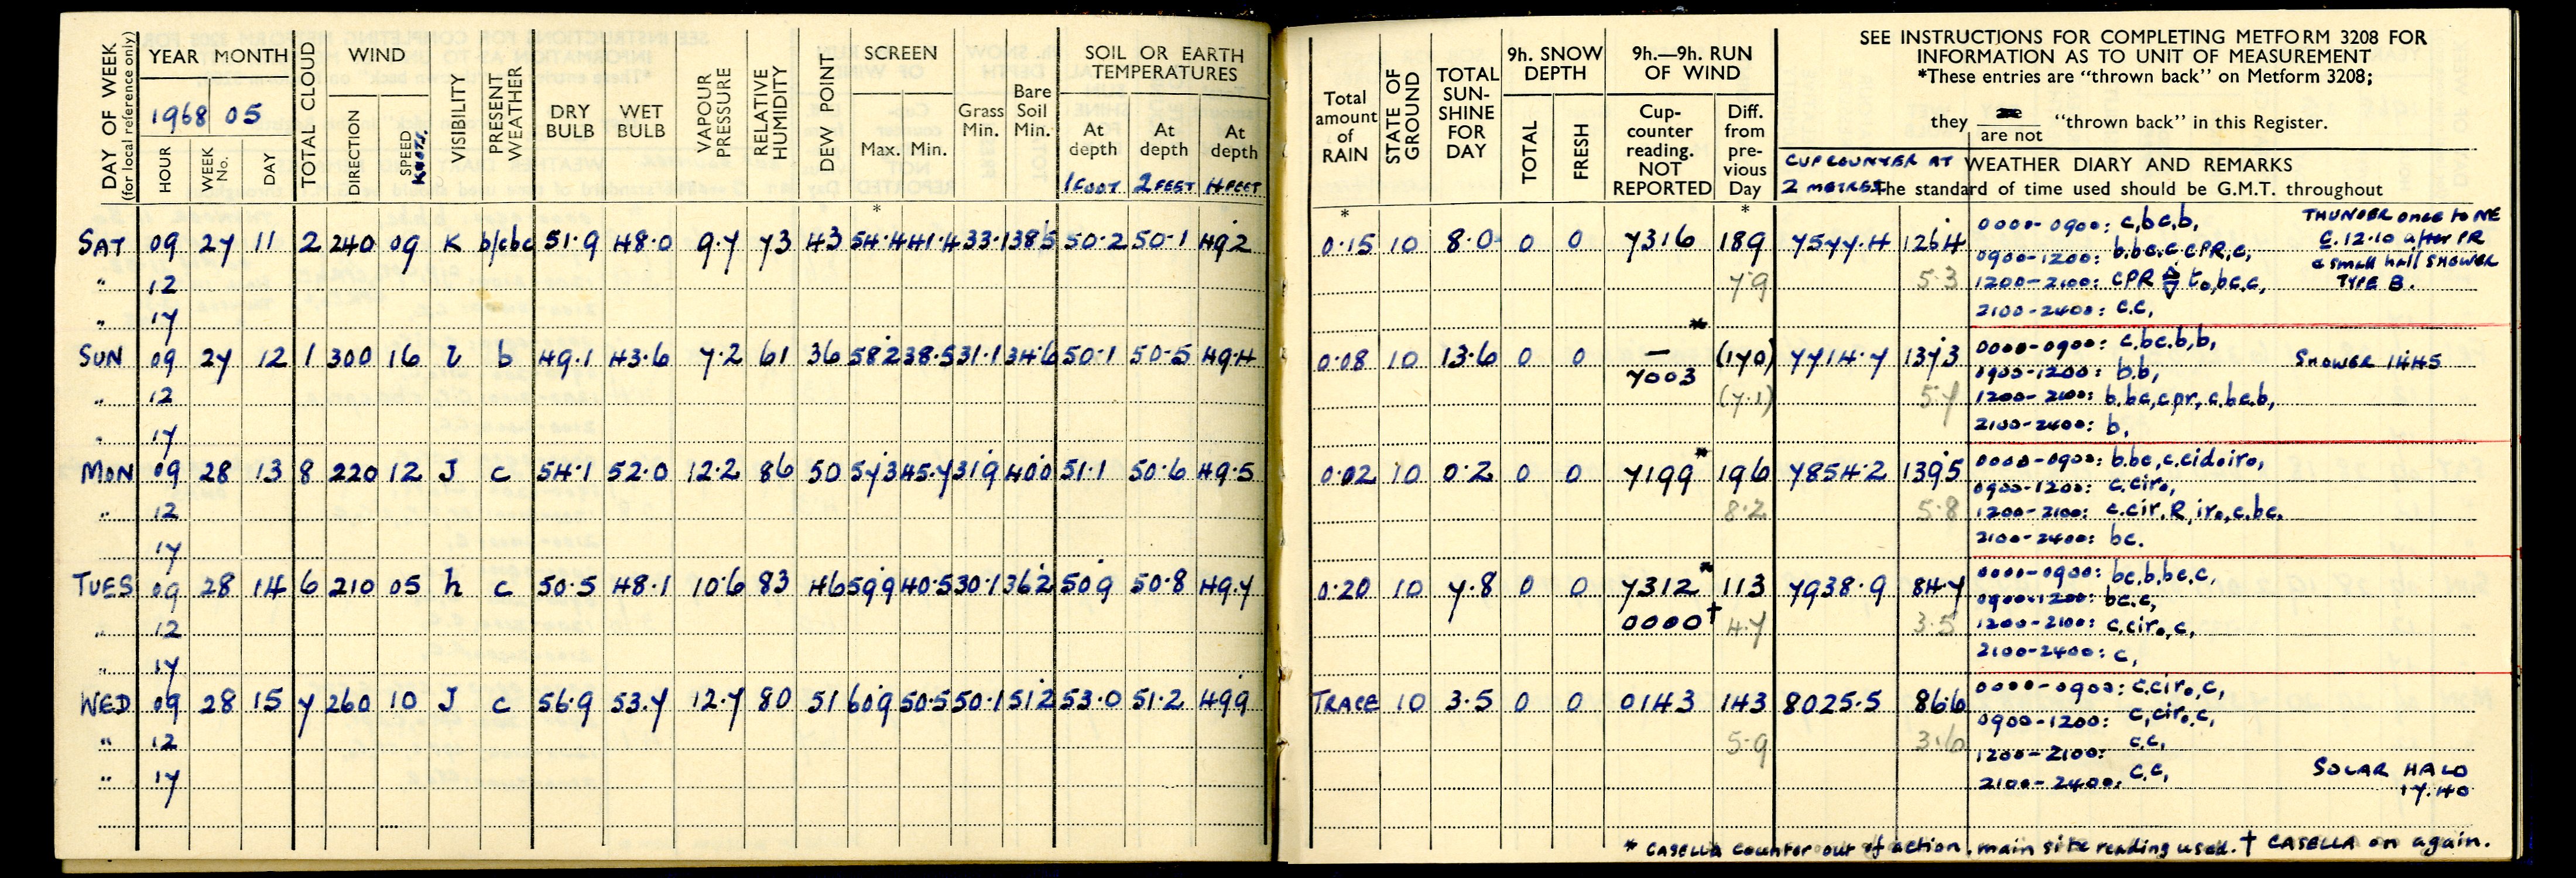 DAY OF WEEK (for local reference only)
YEAR MONTH
1968 05
HOUR
WEEK No.
DAY
TOTAL CLOUD
WIND
DIRECTION
SPEED KNOTS.
VISIBILITY
PRESENT WEATHER
DRY BULB
WET BULB
VAPOUR PRESSURE
RELATIVE HUMIDITY
DEW POINT
SCREEN
Max. Min.
*
Grass Min.
Bare Soil Min.
SOIL OR EARTH TEMPERATURES
At depth 1 FOOT
At depth 2 FEET
At depth 4 FEET
SAT 09 27 11 2 240 09 K b/cbc 51.9 48.0 9.7 73 43 54.4 41.4 33.1 38.5 50.2 50.1 49.2
" 12
" 17
SUN 09 27 12 1 300 16 b 49.1 43.6 7.2 61 36 58.2 38.5 31.1 34.6 50.1 50.5 49.4
" 12
" 17
MON 09 28 13 8 220 12 J c 54.1 52.0 12.2 86 50 57.3 45.7 31.9 40.0 51.1 50.6 49.5
" 12
" 17
TUES 09 28 14 6 210 05 h c 50.5 48.1 10.6 83 46 59.9 40.5 30.1 36.2 50.9 50.8 49.7
" 12
" 17
WED 09 28 15 7 260 10 J c 56.9 53.7 12.7 80 51 60.9 50.5 50.1 51.2 53.0 51.2 49.9
" 12
" 17
Total amount of RAIN
*
STATE OF GROUND
TOTAL SUN-SHINE FOR DAY
9h. SNOW DEPTH
TOTAL
FRESH
9h.—9h. RUN OF WIND
Cup-counter reading. NOT REPORTED
Diff. from pre-vious Day
*
SEE INSTRUCTIONS FOR COMPLETING METFORM 3208 FOR
INFORMATION AS TO UNIT OF MEASUREMENT
*These entries are "thrown back" on Metform 3208;
they are / are not "thrown back" in this Register.
CUP COUNTER AT 2 METRES
WEATHER DIARY AND REMARKS
The standard of time used should be G.M.T. throughout
0.15 10 8.0 0 0 7316 189 7577.4 126.4
7.9 5.3
0000-0900: c,bc,b,
0900-1200: b.bc.c.cPR,c,
1200-2100: cPR t₀,bc.c,
2100-2400: c.c,
THUNDER once to NE
C.12.10 after PR
& small hail SHOWER
TYPE B.
*
0.08 10 13.6 0 0 — (170) 7714.7 137.3
7003
(7.1) 5.7
0000-0900: c.bc.b,b,
0900-1200: b.b,
1200-2100: b.bc,cpr,c.bc.b,
2100-2400: b,
SHOWER 1445
0.02 10 0.2 0 0 7199* 196 7854.2 139.5
8.2 5.8
0000-0900: b.bc,c.cid₀ir₀,
0900-1200: c.cir₀,
1200-2100: c.cir.R,ir₀,c.bc.
2100-2400: bc.
0.20 10 7.8 0 0 7312* 113 7938.9 84.7
0000† 4.7 3.5
0000-0900: bc,b.bc.c,
0900-1200: bc.c,
1200-2100: c.cir₀,c,
2100-2400: c,
TRACE 10 3.5 0 0 0143 143 8025.5 86.6
5.9 3.6
0000-0900: c.cir₀,c,
0900-1200: c,cir₀,c,
1200-2100: c.c,
2100-2400: c.c,
SOLAR HALO
17.40
* CASELLA counter out of action, main site reading used. † CASELLA on again.